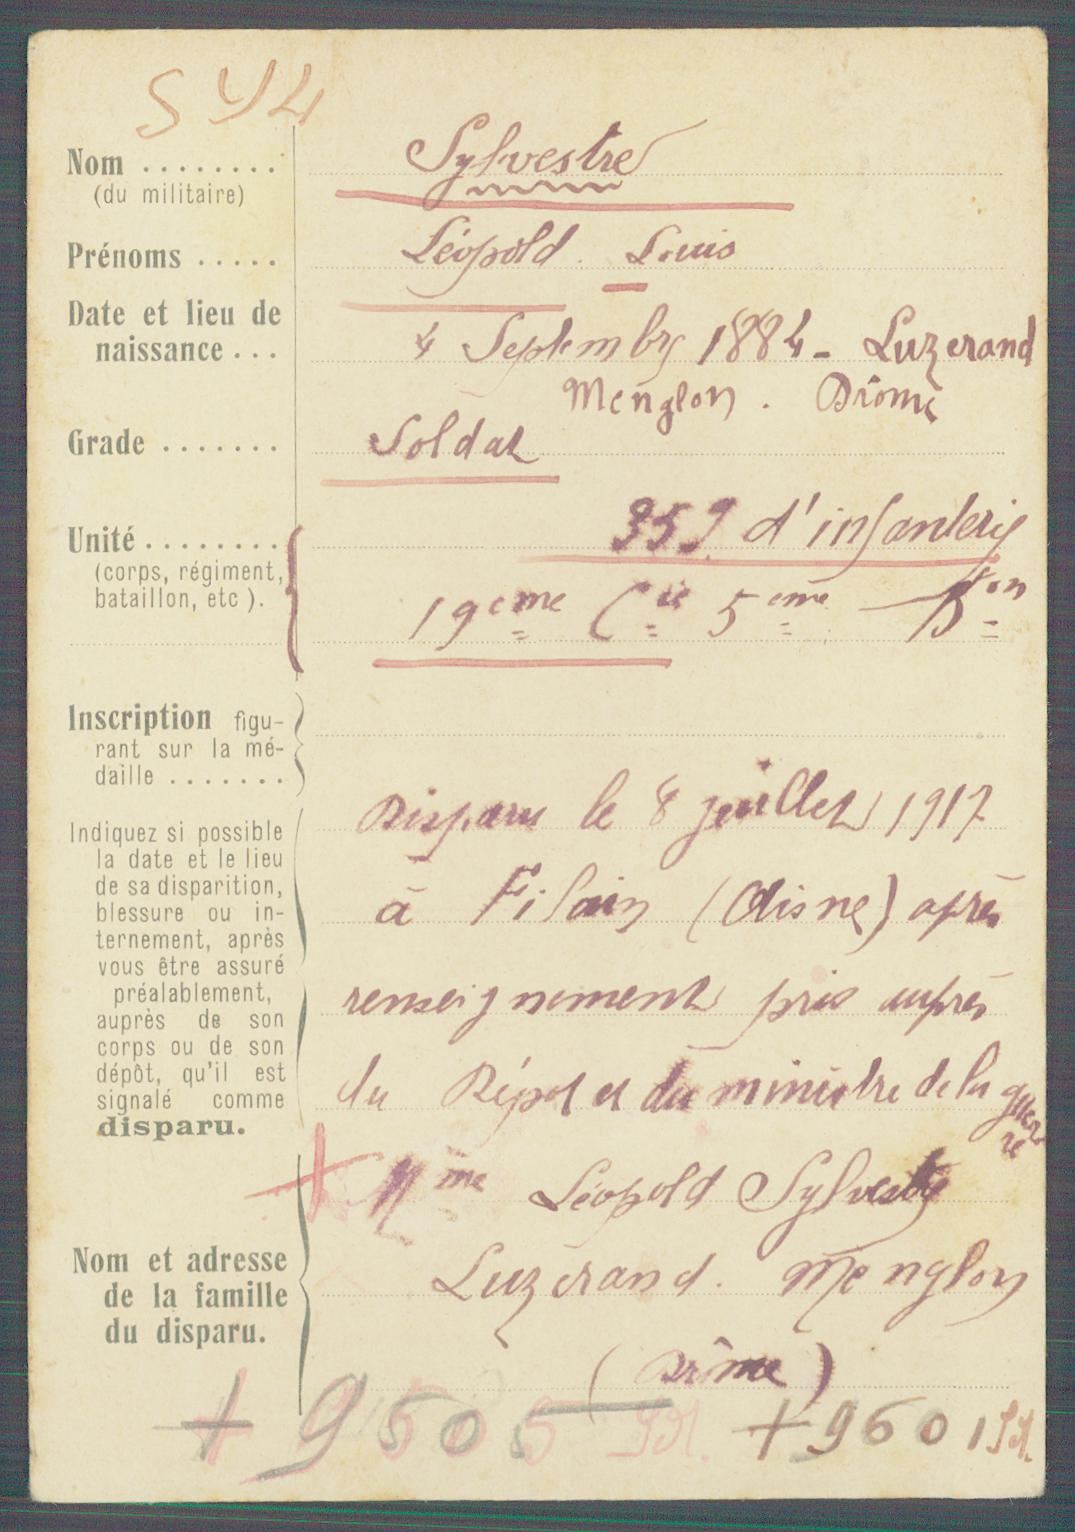 SY4
Nom ........ Sylvestre
(du militaire)
Prénoms ..... Léopold. Louis
Date et lieu de
naissance ... 4 Septembre 1884 - Luzerand
Menglon. Drôme
Grade ....... Soldat
359 d'infanterie
Unité ........
(corps, régiment,
bataillon, etc).
19eme Cie 5eme Bon
Inscription figu-
rant sur la mé-
daille .......
Disparu le 8 juillet 1917
à Filain (Aisne) après
renseignement pris auprès
du Dépot et du ministre de la guer
re
Indiquez si possible
la date et le lieu
de sa disparition,
blessure ou in-
ternement, après
vous être assuré
préalablement,
auprès de son
corps ou de son
dépôt, qu'il est
signalé comme
disparu.
+ Mme Léopold Sylvestre
Luzerand. Menglon
(Drôme)
Nom et adresse
de la famille
du disparu.
+ 9505 + 9601